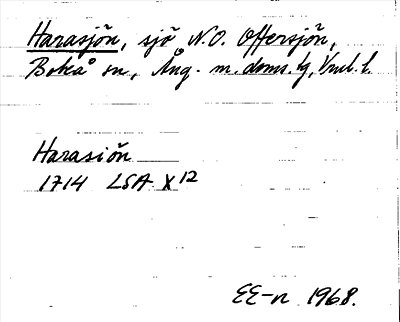 Harasjön, sjö N.O. Offersjön,
Boteå sn, Ång. m. doms. lg, Vnl. l.
Harasiön
1714 LSA X12
EE-n 1968.